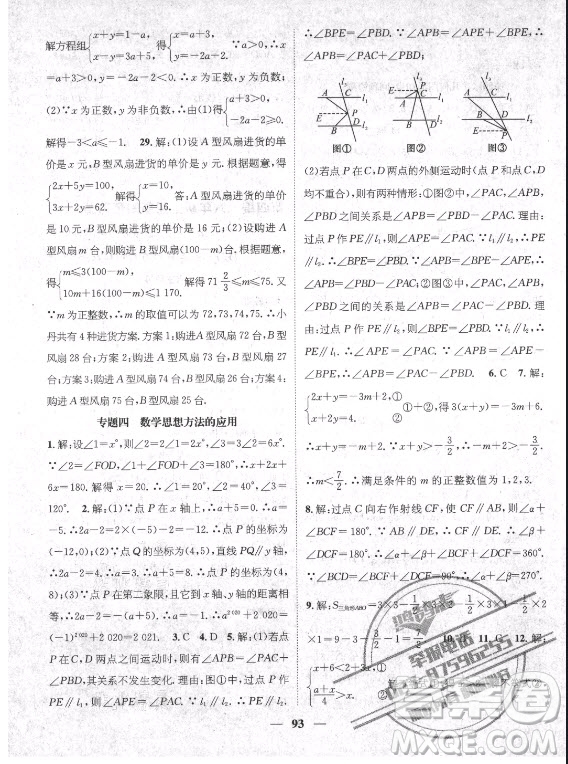 解方程组{x+y=1-a, x-y=3a+5.得{x=a+3, y=-2a-2.∵a>0,∴x
=a+3>0,y=-2a-2<0.∵x为正数,y为负数.
(2)∵x为正数,y为非负数,∴由(1)得{a+3>0, -2a-2≥0,
解得-3<a≤-1. 29.解:(1)设A型风扇进货的单
价是x元,B型风扇进货的单价是y元.根据题意,得
{2x+5y=100, 3x+2y=62.解得{x=10, y=16.答:A型风扇进货的单价
是10元,B型风扇进货的单价是16元.(2)设购进A
型风扇m台,则购进B型风扇(100-m)台.根据题意,
得{m≤3(100-m), 10m+16(100-m)≤1 170.解得71 2/3≤m≤75.又
∵m为正整数,∴m的取值可以为72,73,74,75.∴小
丹共有4种进货方案.方案1:购进A型风扇72台,B型
风扇28台;方案2:购进A型风扇73台,B型风扇27
台;方案3:购进A型风扇74台,B型风扇26台;方案4:
购进A型风扇75台,B型风扇25台.
专题四 数学思想方法的应用
1.解:设∠1=x°,则∠2=∠1=x°,∠3=6∠2=6x°.
∵∠2=∠FOD,∠1+∠FOD+∠3=180°,∴x+2x+
6x=180.解得x=20.∴∠1=20°,∠2=40°,∠3=
120°. 2.解:(1)∵点P在x轴上,∴a+5=0.∴a=
-5.∴2a-2=2×(-5)-2=-12.∴点P的坐标为
(-12,0);(2)∵点Q的坐标为(4,5),直线PQ∥y轴,
∴2a-2=4.∴a=3.∴a+5=8.∴点P的坐标为
(4,8);(3)∵点P在第二象限,且它到x轴、y轴的距离
相等,∴2a-2=-(a+5).∴a=-1.∴a^2 020+2 020=
(-1)^2 020+2 020=2 021. 3.C 4.D 5.解:(1)若点P在
C,D两点之间运动时,则有∠APB=∠PAC+∠PBD.
理由:过点P作PE∥l₁.如图①,∵PE∥l₁,l₁∥l₂,∴
PE∥l₂∥l₁.∴∠APE=∠PAC.又∵PE∥l₂,
∴∠BPE=∠PBD.∴∠APE+∠BPE=∠PAC+
∠PBD.∴∠APB=∠PAC+∠PBD.
图① 图② 图③
(2)若点P在C,D两点的外侧运动时(点P和点C,D
均不重合),则有两种情形:①图②中,∠PAC,∠APB,
∠PBD之间关系是∠APB=∠PBD-∠PAC.理由:
过点P作PE∥l₁,∴∠APE=∠PAC.又∵PE∥l₂,
∴∠BPE=∠PBD.∴∠APB=∠BPE-∠APE=
∠PBD-∠PAC;②图③中,∠PAC,∠APB,∠PBD之
间的关系是∠APB=∠PAC-∠PBD.理由:过点P作
PE∥l₂,∴∠BPE=∠PBD.∵PE∥l₁,∴∠APE=
∠PAC.∴∠APB=∠APE-∠BPE.
∴∠APB=∠PAC-∠PBD. 6.C 7.解:
{2x+y=-3m+2,① x+2y=4.②①+②,得3(x+y)=-3m+6.
∴x+y=-m+2.∵x+y>-3/2,∴-m+2>-3/2.
∴m<7/2.∴满足条件的m的正整数值为1,2,3.
8.解:过点C向右作射线CF,使CF∥AB,则∠α+
∠BCF=180°.∵AB∥DE,∴CF∥DE.∴∠β+
∠DCF=180°.∴∠α+∠BCF+∠β+∠DCF=360°.
9.解:S三角形ABO=3×3-1/2×3×1-1/2×2×3-1/2×2
×1=9-3-3/2-1=7/2. 11.C 12.解:
{x+6<2+3x, (a+x)/4>x.
93
作业帮电话
975962255
MXQE.COM